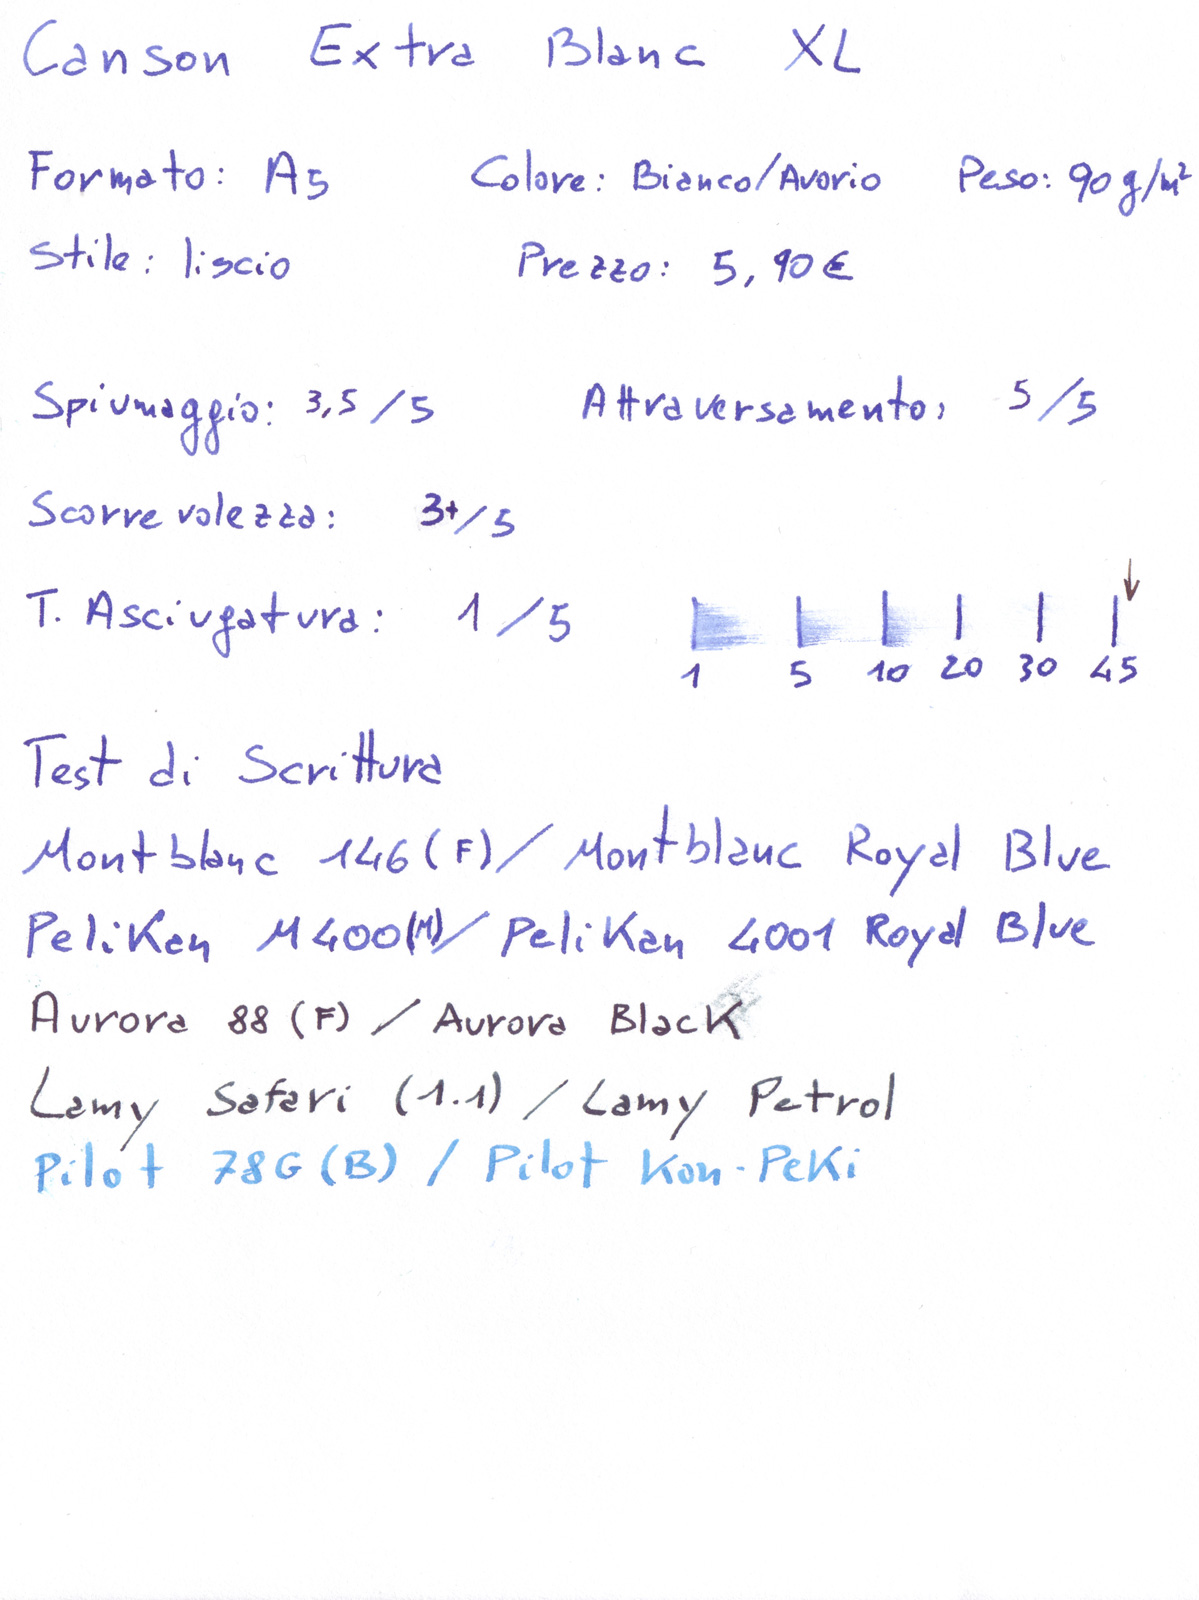 Canson Extra Blanc XL
Formato: A5 Colore: Bianco/Avorio Peso: 90g/m²
Stile: liscio Prezzo: 5,90€
Spiumaggio: 3,5/5 Attraversamento: 5/5
Scorrevolezza: 3+/5
T. Asciugatura: 1/5
1 5 10 20 30 45
Test di Scrittura
Montblanc 146(F)/Montblanc Royal Blue
Pelikan M400(M)/Pelikan 4001 Royal Blue
Aurora 88 (F) / Aurora Black
Lamy Safari (1.1) / Lamy Petrol
Pilot 78G(B) / Pilot Kon-Peki